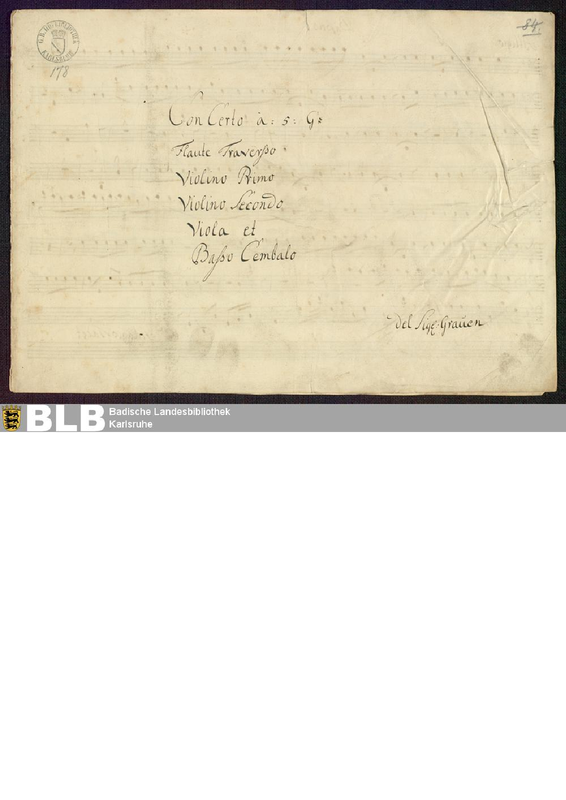 84.
178
Con Certo à: 5: G♮
Flaute Traverßo
Violino Primo
Violino Secondo
Viola et
Baßo Cembalo
Del Sigr: Grauen
BLB Badische Landesbibliothek
Karlsruhe